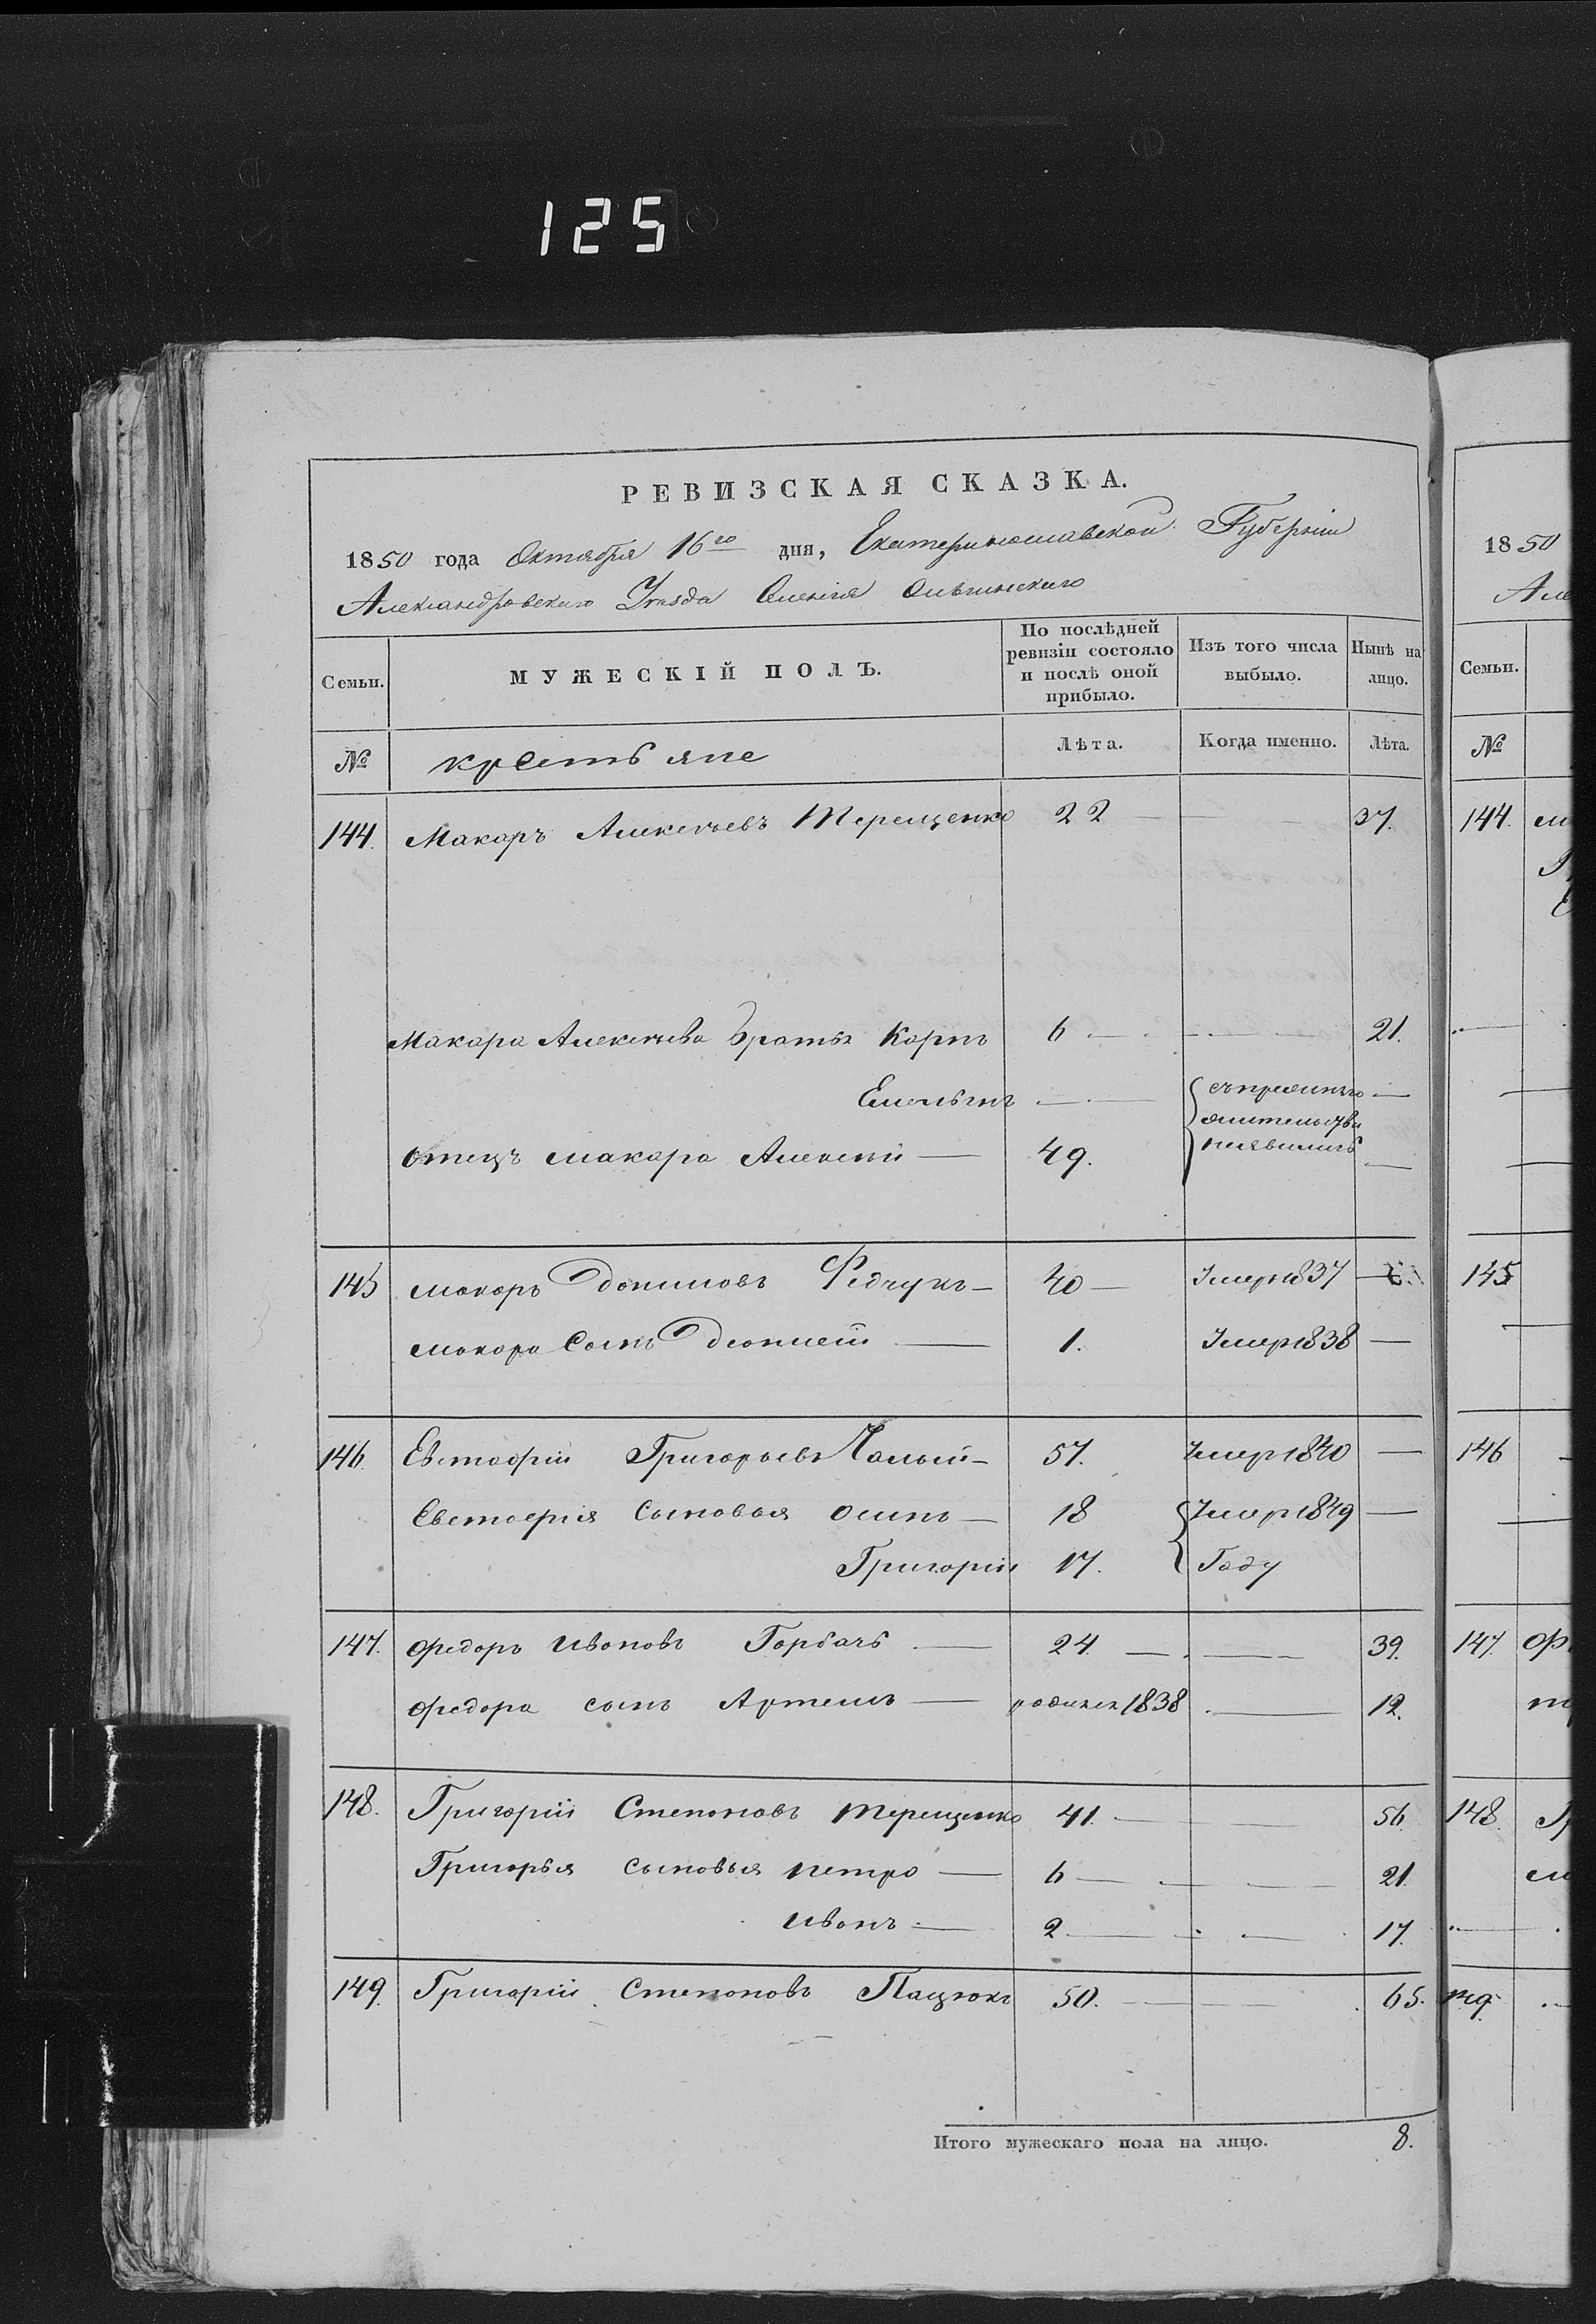 125
РЕВИЗСКАЯ СКАЗКА.
1850 года Октября 16го дня, Екатеринославской Губерніи
Александровского Уезда Селенія
Семьи.
МУЖЕСКІЙ ПОЛЪ.
По послѣдней
ревизіи состояло
и послѣ оной
прибыло.
Изъ того числа
выбыло.
Нынѣ на
лицо.
№ крестьяне Лѣта. Когда именно. Лѣта.
144. Макаръ Алексеевъ Терещенко 22 — — 37.
Макара Алексеева Братья Карпъ 6 — — 21.
Емельянъ — — —
отецъ макара Алексей — 49. —
145 макаръ Федчукъ — 40 — Умер 1837 —
макара Сынъ — 1. Умер 1838 —
146. Евстафій Григорьевъ Чалый — 57. Умер 1840 —
Евстафія Сыновья осипъ — 18 Умер 1849 —
Григорій 17. Году
147. Федоръ Ивановъ Горбачь — 24 — — 39.
Федора сынъ Артемъ — родился 1838 — 12.
148. Григорій Степановъ терещенко 41. — — 56.
Григорья сыновья петро — 6 — — 21.
Иванъ — 2 — — 17.
149. Григорій Степановъ Пацюкъ 50. — — 65.
Итого мужескаго пола на лицо. 8.
1850
Але
Семьи.
№
144.
145
146
147.
148.
149.